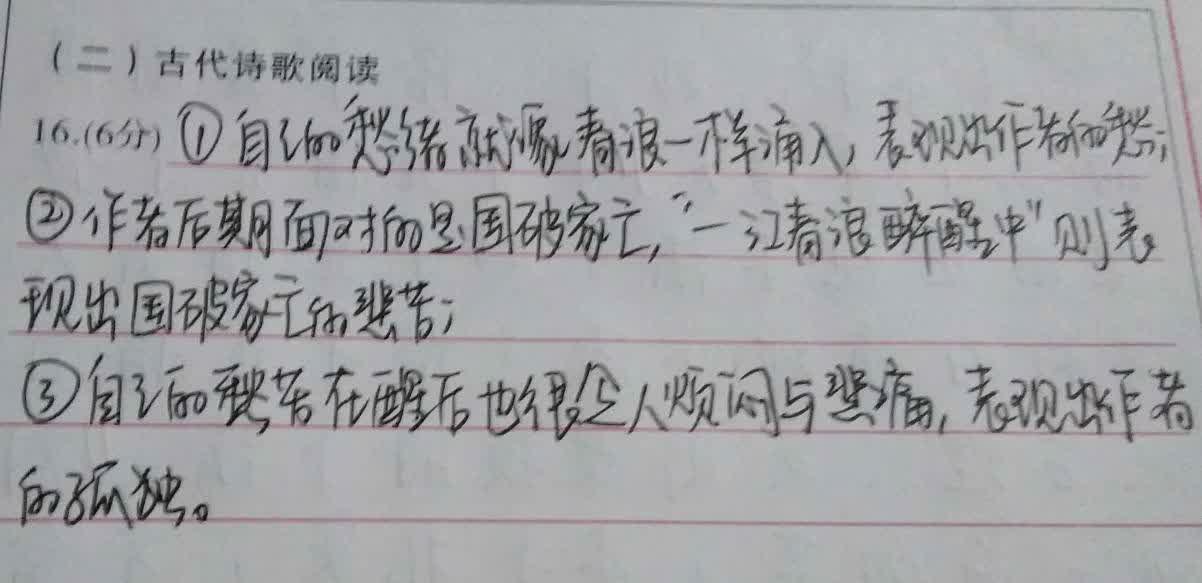 （二）古代诗歌阅读
16.(6分)①自己的愁绪就像春浪一样涌入,表现出作者的愁;
②作者后期面对的是国破家亡,“一江春浪醉醒中”则表
现出国破家亡的悲苦;
③自己的愁苦在醒后也很令人烦闷与悲痛,表现出作者
的孤独。